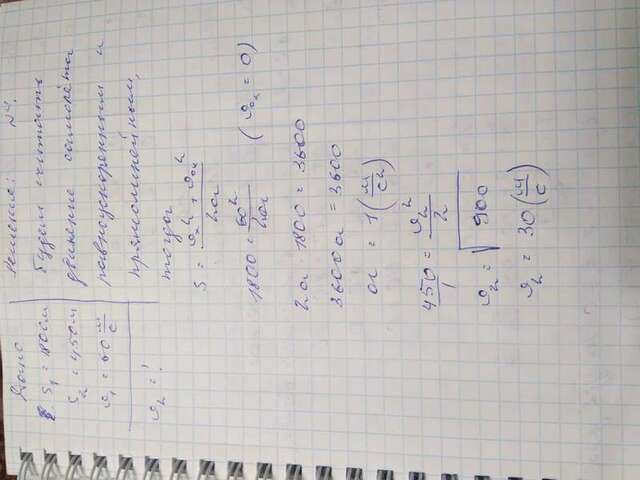 Дано
S₁ = 1800 м
S₂ = 450 м
υ₁ = 60 м/с
υ₂ = ?
Решение: №4.
Будем считать
движение самолёта
равноускоренным и
прямолинейным,
тогда
S = (υₓ² - υ₀ₓ²)/2a
1800 = 60²/2a (υ₀ₓ = 0)
2a · 1800 = 3600
3600a = 3600
a = 1 (м/с²)
450/1 = υ₂²/2
υ₂ = √900
υ₂ = 30 (м/с)